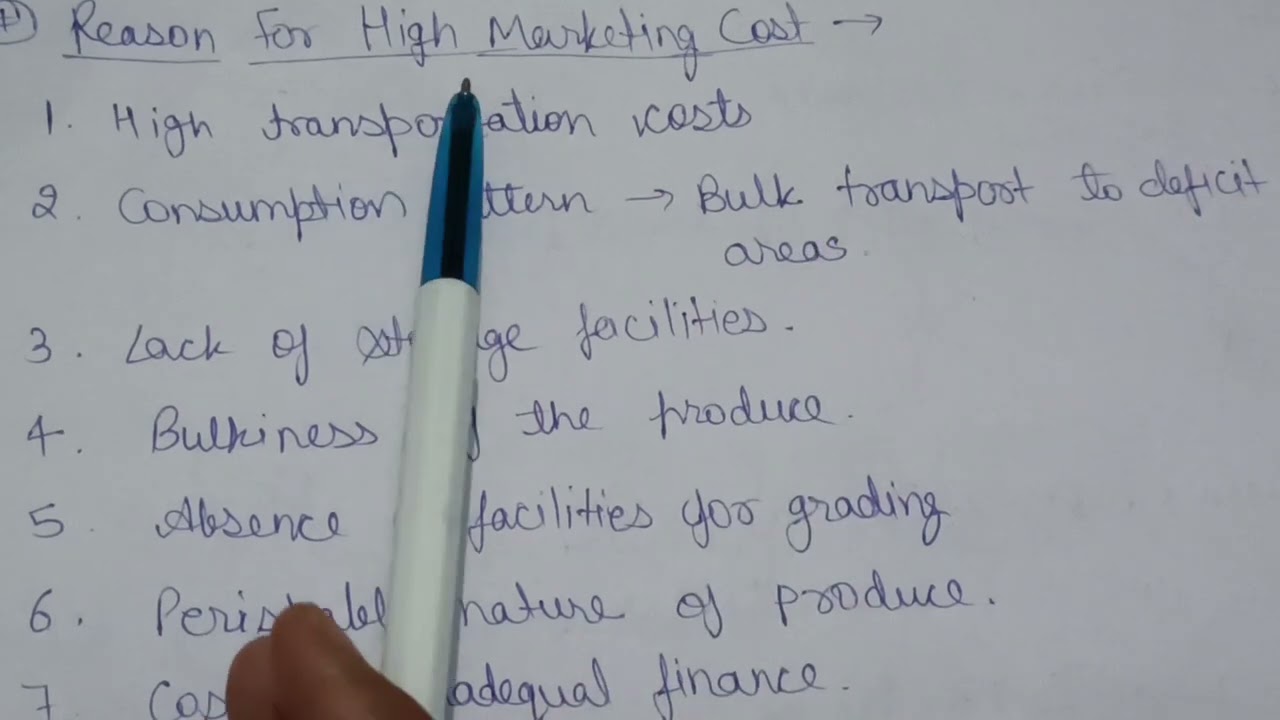 Reason For High Marketing Cost →
1. High transportation costs
2. Consumption pattern → Bulk transport to deficit
areas.
3. Lack of storage facilities.
4. Bulkiness of the produce.
5. Absence facilities for grading
6. Perishable nature of produce.
7 finance.